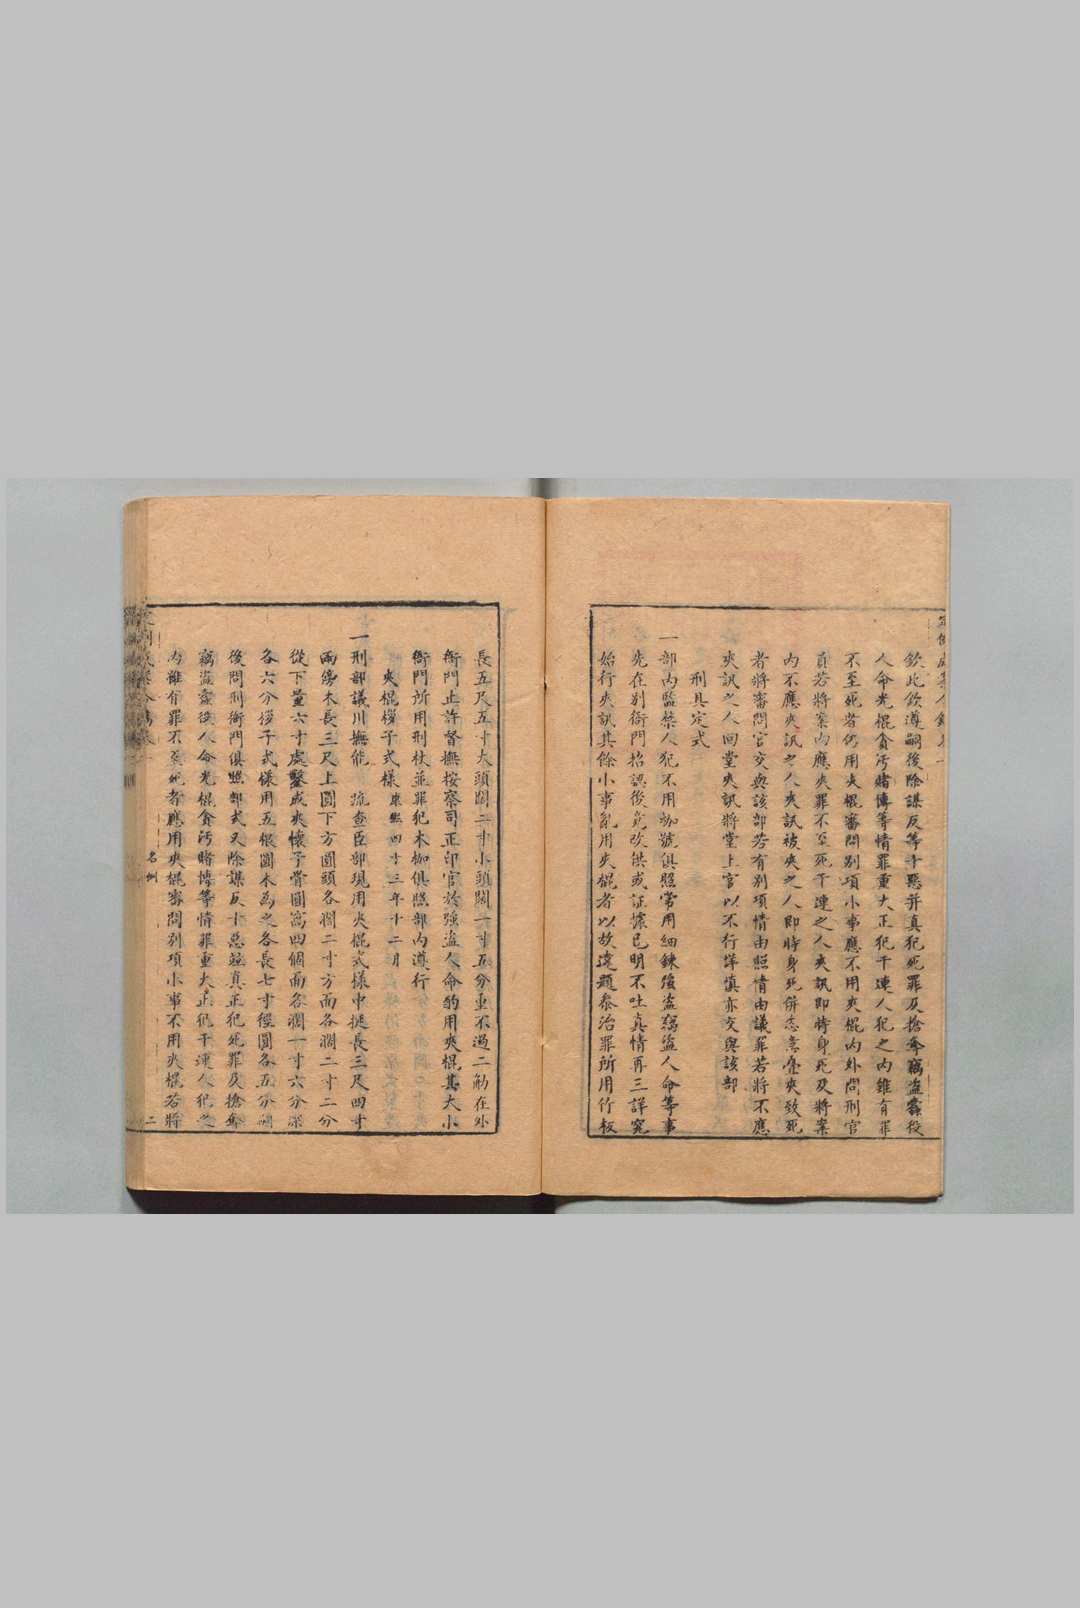 欽此欽遵嗣後除謀反等十惡并真犯死罪及搶奪竊盜蠹役
人命光棍貪污賭博等情罪重大正犯干連人犯之內雖有罪
不至死者仍用夾棍審問別項小事應不用夾棍內外問刑官
員若將案內應夾罪不至死干連之人夾訊即時身死及將案
內不應夾訊之人夾訊被夾之人即時身死併恣意疊夾致死
者將審問官交與該部若有別項情由照情由議罪若將不應
夾訊之人回堂夾訊將堂上官以不行詳慎亦交與該部
刑具定式
一部內監禁人犯不用枷號俱照常用細鍊強盜竊盜人命等事
先在別衙門招認後竟改供或証據已明不吐真情再三詳究
始行夾訊其餘小事亂用夾棍者以故違題參治罪所用竹板
長五尺五寸大頭闊二寸小頭闊一寸五分重不過二觔在外
衙門止許督撫按察司正印官於強盜人命酌用夾棍其大小
衙門所用刑杖並罪犯木枷俱照部內遵行
夾棍桚子式樣 康熙四十三年十二月
一刑部議川撫能 疏查臣部現用夾棍式樣中挺長三尺四寸
兩傍木長三尺上圓下方圓頭各濶二寸方面各濶二寸二分
從下量六寸處鑿成夾懷子嘗圓窩四個面各濶一寸六分深
各六分桚子式樣用五根圓木為之各長七寸徑圓各五分
後問刑衙門俱照部式又除謀反十惡並真正犯死罪及搶奪
竊盜蠹役人命光棍貪污賭博等情罪重大正犯干連人犯之
內雖有罪不至死者應用夾棍審問別項小事不用夾棍若將
名例
二